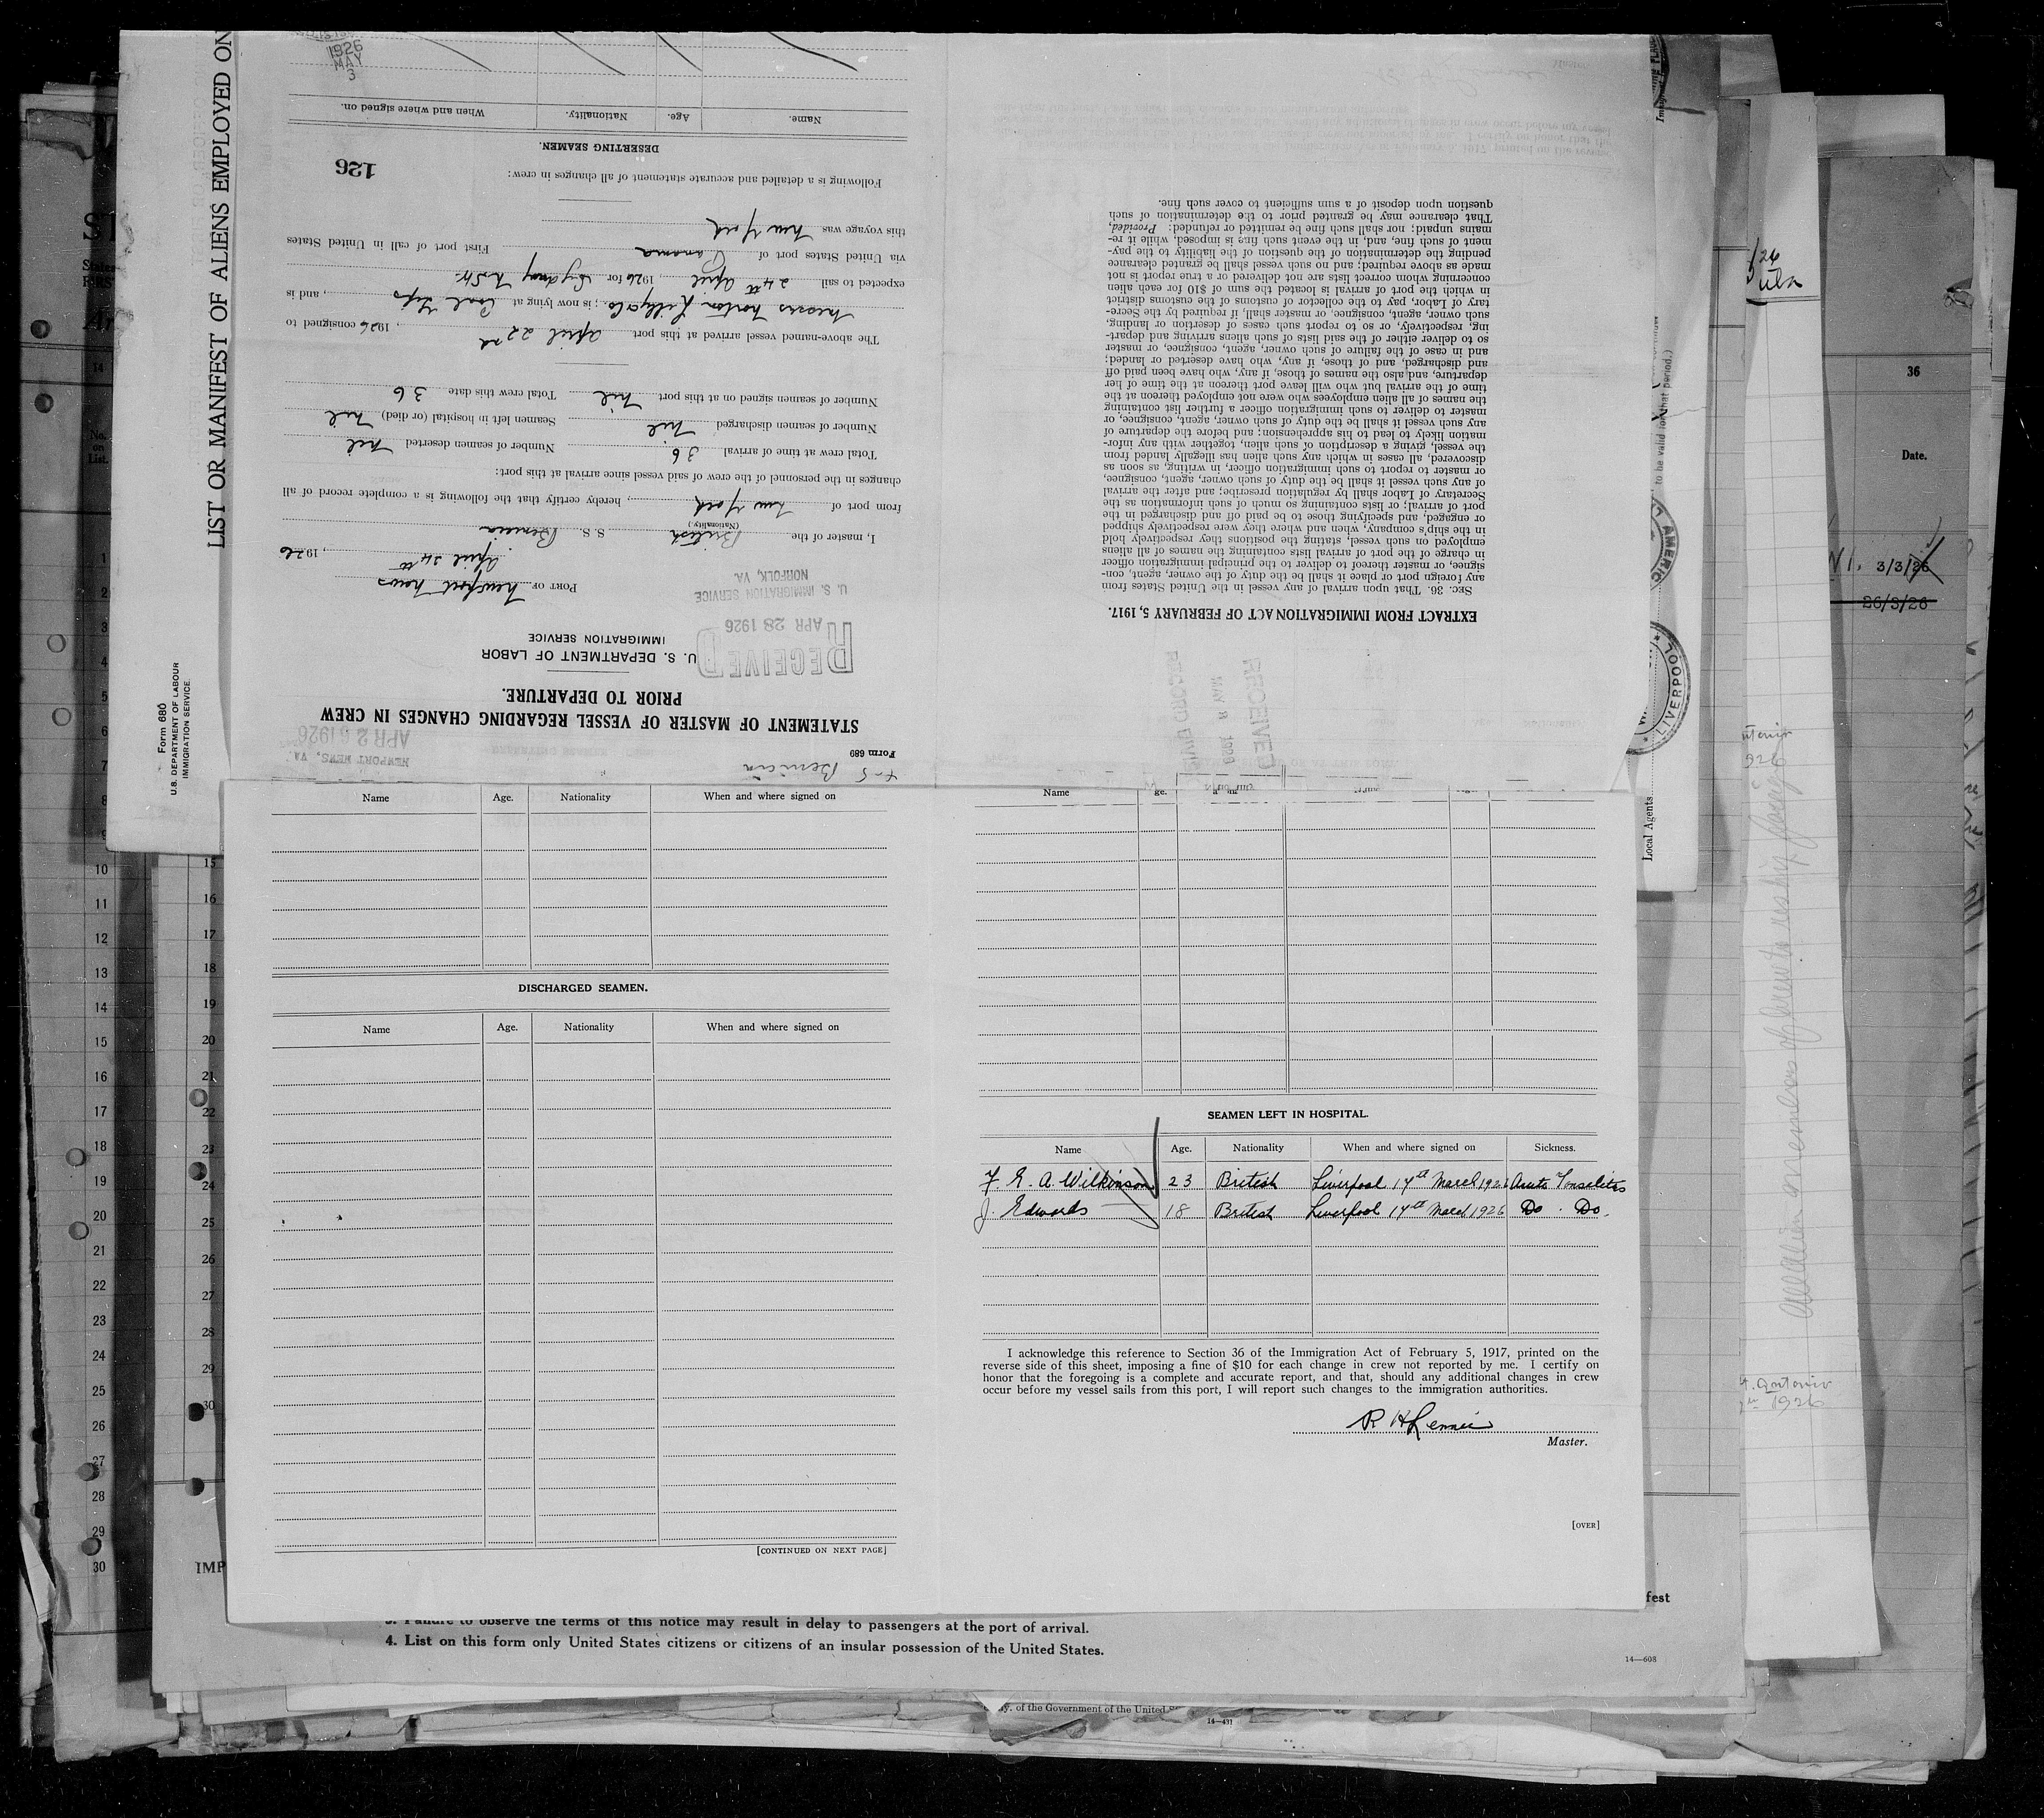 STATEMENT OF MASTER OF VESSEL REGARDING CHANGES IN CREW
PRIOR TO DEPARTURE.
Form 689
NEWPORT NEWS, VA.
APR 26 1926
U. S. DEPARTMENT OF LABOR
IMMIGRATION SERVICE
RECEIVED
APR 28 1926
U. S. IMMIGRATION SERVICE
NORFOLK, VA.
Port of Newport News
April 24th, 1926
I, master of the British S. S. Benicia
(Nationality.)
from port of New York, hereby certify that the following is a complete record of all
changes in the personnel of the crew of said vessel since arrival at this port:
Total crew at time of arrival 36 Number of seamen deserted nil
Number of seamen discharged nil Seamen left in hospital (or died) nil
Number of seamen signed on at this port nil Total crew this date 36
The above-named vessel arrived at this port April 22nd, 1926 consigned to
Messrs Norton Lilly & Co; is now lying at Coal, and is
expected to sail 24th April, 1926 for Sydney N.S.W.
via United States port of Panama First port of call in United States
this voyage was New York
Following is a detailed and accurate statement of all changes in crew:
126
DESERTING SEAMEN.
Name. Age. Nationality. When and where signed on.
1926
MAY
3
EXTRACT FROM IMMIGRATION ACT OF FEBRUARY 5, 1917.
SEC. 36. That upon arrival of any vessel in the United States from
any foreign port or place it shall be the duty of the owner, agent, con-
signee, or master thereof to deliver to the principal immigration officer
in charge of the port of arrival lists containing the names of all aliens
employed on such vessel, stating the positions they respectively hold
in the ship's company, when and where they were respectively shipped
or engaged, and specifying those to be paid off and discharged in the
port of arrival; or lists containing so much of such information as the
Secretary of Labor shall by regulation prescribe; and after the arrival
of any such vessel it shall be the duty of such owner, agent, consignee,
or master to report to such immigration officer, in writing, as soon as
discovered, all cases in which any such alien has illegally landed from
the vessel, giving a description of such alien, together with any infor-
mation likely to lead to his apprehension; and before the departure of
any such vessel it shall be the duty of such owner, agent, consignee, or
master to deliver to such immigration officer a further list containing
the names of all alien employees who were not employed thereon at the
time of the arrival but who will leave port thereon at the time of her
departure, and also the names of those, if any, who have been paid off
and discharged, and of those, if any, who have deserted or landed;
and in case of the failure of such owner, agent, consignee, or master
so to deliver either of the said lists of such aliens arriving and depart-
ing, respectively, or so to report such cases of desertion or landing,
such owner, agent, consignee, or master shall, if required by the Secre-
tary of Labor, pay to the collector of customs of the customs district
in which the port of arrival is located the sum of $10 for each alien
concerning whom correct lists are not delivered or a true report is not
made as above required; and no such vessel shall be granted clearance
pending the determination of the question of the liability to the pay-
ment of such fine, and, in the event such fine is imposed, while it re-
mains unpaid; nor shall such fine be remitted or refunded: Provided,
That clearance may be granted prior to the determination of such
question upon deposit of a sum sufficient to cover such fine.
LIST OR MANIFEST OF ALIENS EMPLOYED ON
Form 680
U.S. DEPARTMENT OF LABOUR
IMMIGRATION SERVICE.
Name Age. Nationality When and where signed on
DISCHARGED SEAMEN.
Name Age. Nationality When and where signed on
[CONTINUED ON NEXT PAGE]
Name
SEAMEN LEFT IN HOSPITAL.
Name Age. Nationality When and where signed on Sickness.
F. E. A. Wilkinson 23 British Liverpool 17th March 1926 Acute Tonselitis
J. Edwards 18 British Liverpool 17th March 1926 Do. Do.
I acknowledge this reference to Section 36 of the Immigration Act of February 5, 1917, printed on the
reverse side of this sheet, imposing a fine of $10 for each change in crew not reported by me. I certify on
honor that the foregoing is a complete and accurate report, and that, should any additional changes in crew
occur before my vessel sails from this port, I will report such changes to the immigration authorities.
R H Lennie
Master.
[OVER]
3. Failure to observe the terms of this notice may result in delay to passengers at the port of arrival.
4. List on this form only United States citizens or citizens of an insular possession of the United States.
14—608
of the Government of the United
14—431
Local Agents
to be valid for that period.)
LIVERPOOL
AMERIC
36
Date.
3/3/26
26/3/26
All alien members of crew to reship foreign
No.
on
List.